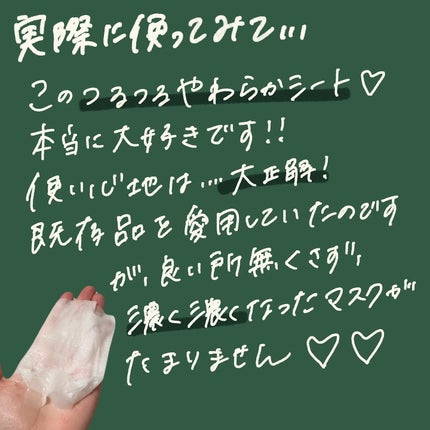 実際に使ってみて...
このつるつるやわらかシート♡
本当に大好きです!!
使い心地は...大正解!
既存品を愛用していたのです
が、良い所無くさず、
濃く濃くなったマスクが
たまりません♡♡